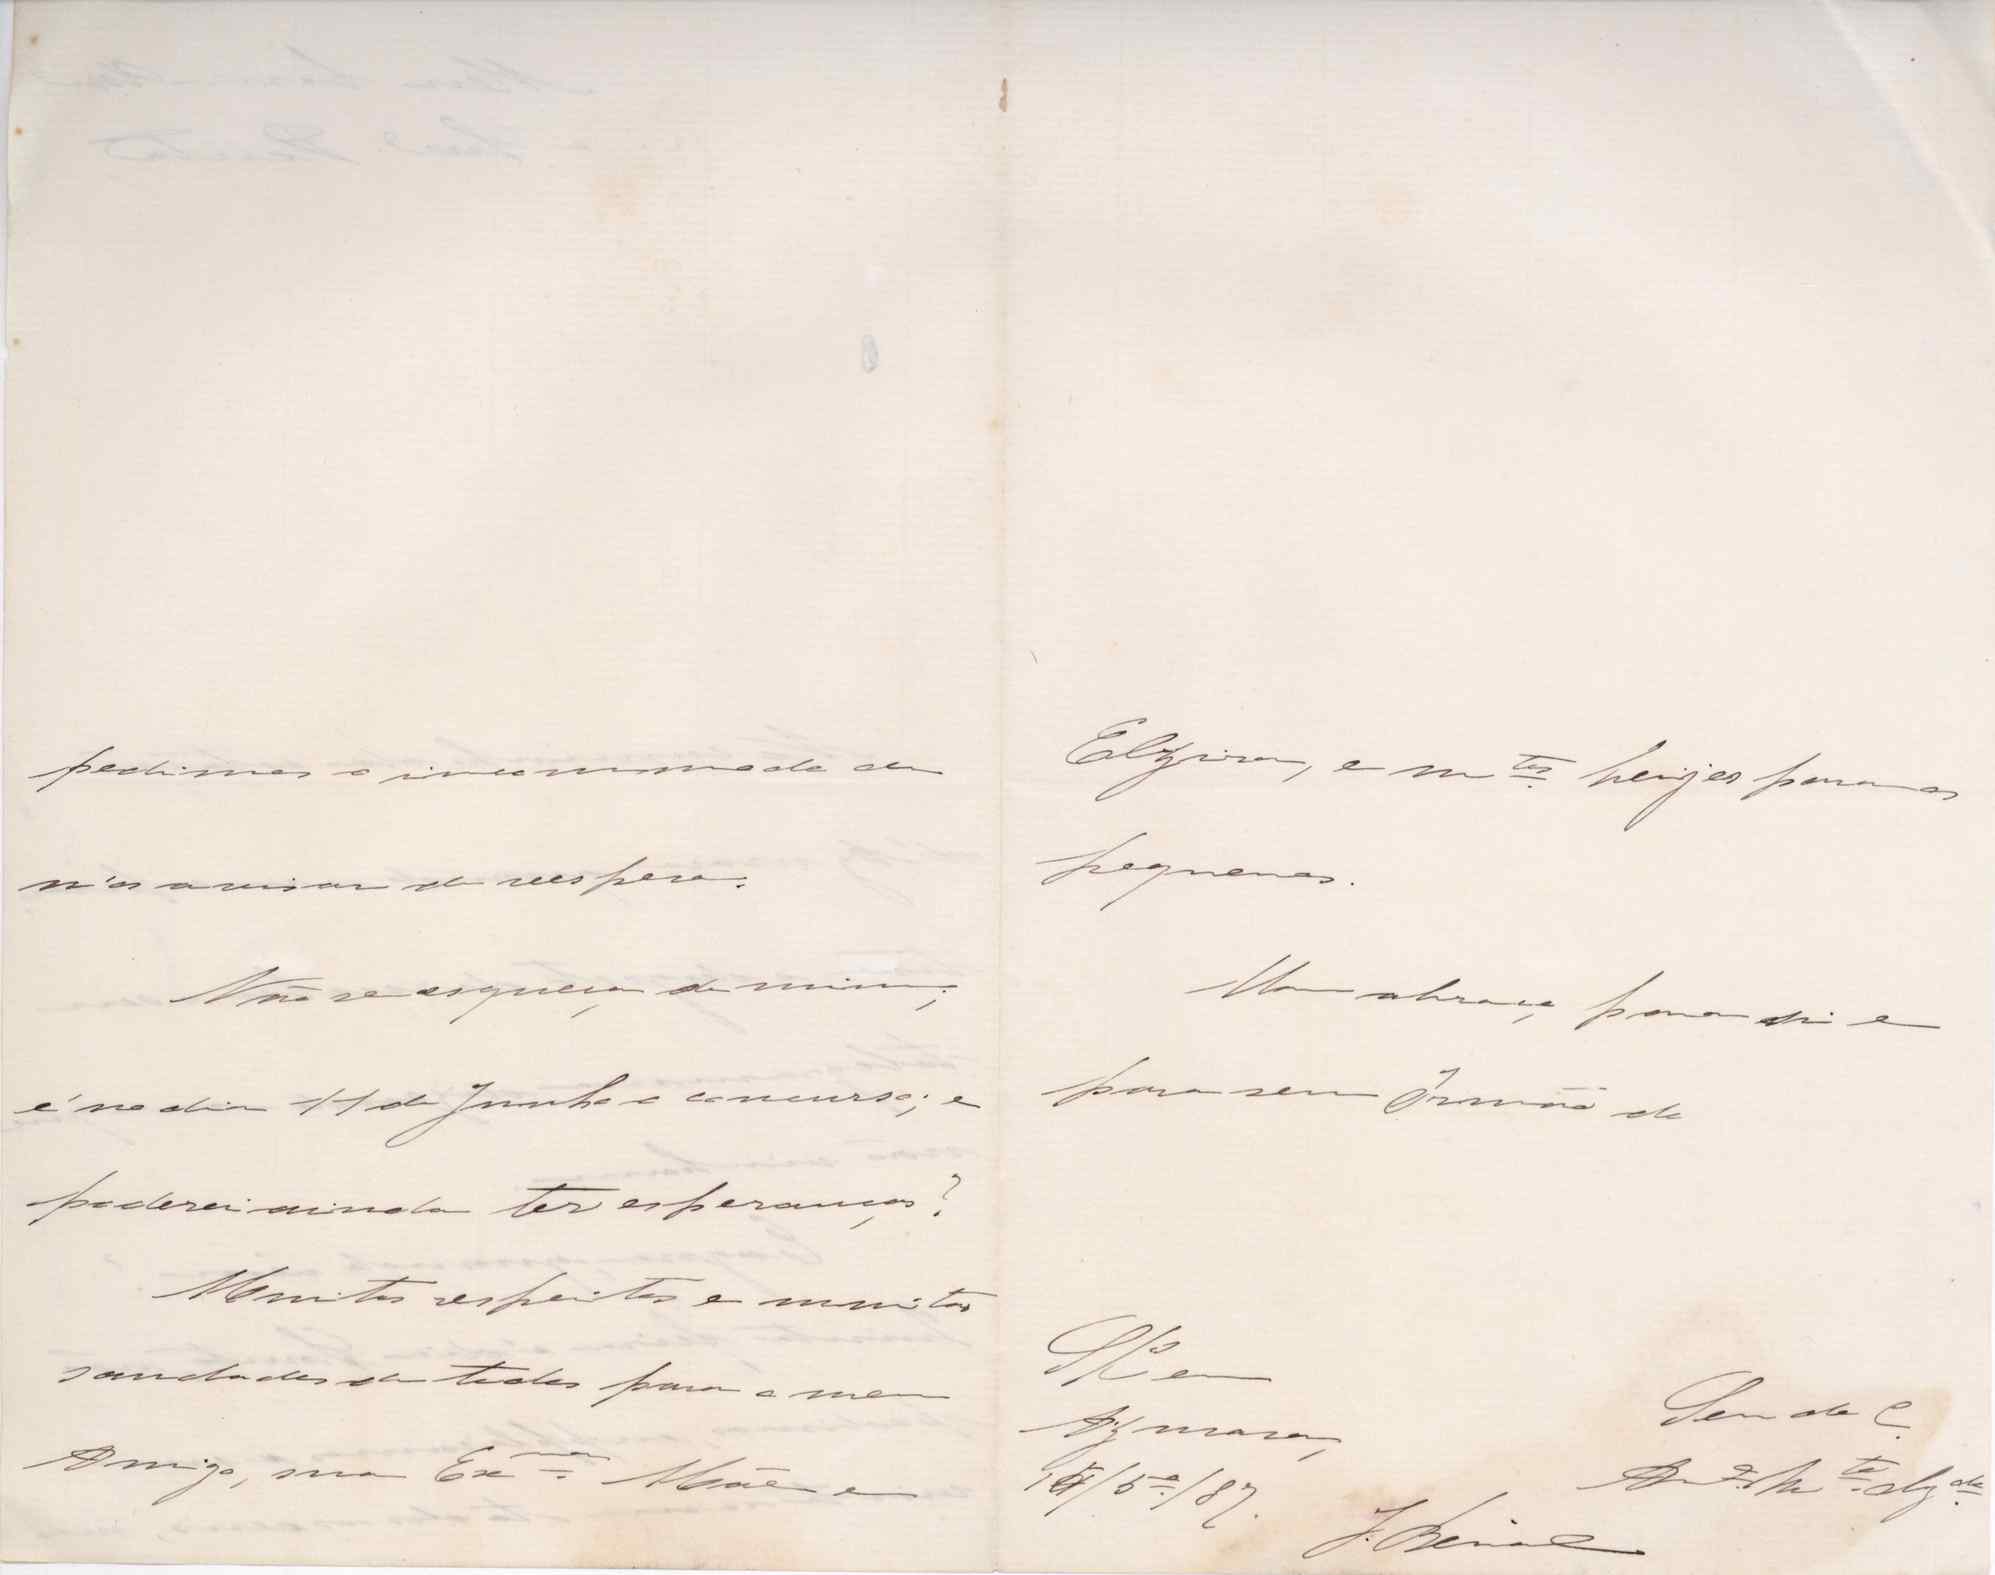 pedimos o incommodo de
n'os avisar de vespera.
Não se esqueça de mim;
é no dia 11 de Junho o concurso; e
poderei ainda ter esperanças?
Muitos respeitos e muitas
saudades de todos para o meu
Amigo, sua Ex.ma Mãe e
Elzira, e m.tos beijos para os
pequenos.
Um abraço para si e
para seu Irmão do
S/C em
Azmara,
/5.º/87.
Seu de C.
Am.º M.to Obg.do
J.